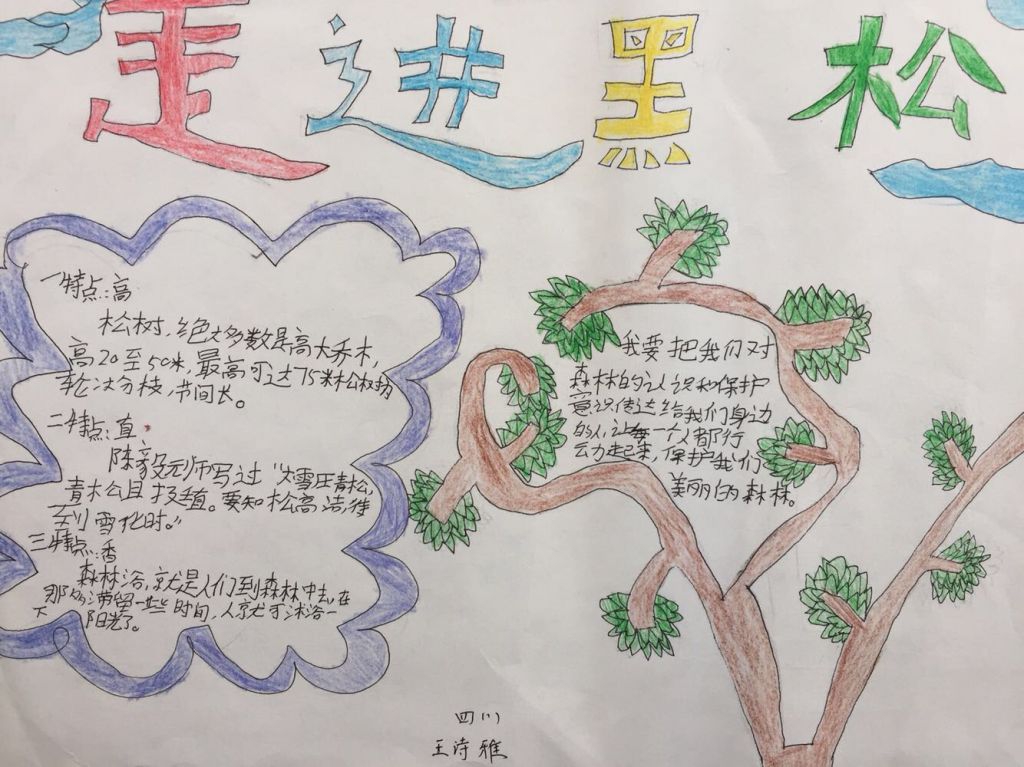 走进黑松
一特点:高
松树,绝大多数是高大乔木,
高20至50米,最高可达75米松树为
轮次分枝,节间长。
二特点:直
陈毅元师写过“大雪压青松,
青松且挺直。要知松高洁,待
到雪化时。”
三特点:香
森林浴,就是人们到森林中去,在
那多滞留一些时间,人就可沐浴一
下阳光了。
我要把我们对
森林的认识和保护
意识传达给我们身边
的人,让每一个人都行
动起来,保护我们
美丽的森林。
四川
王诗雅